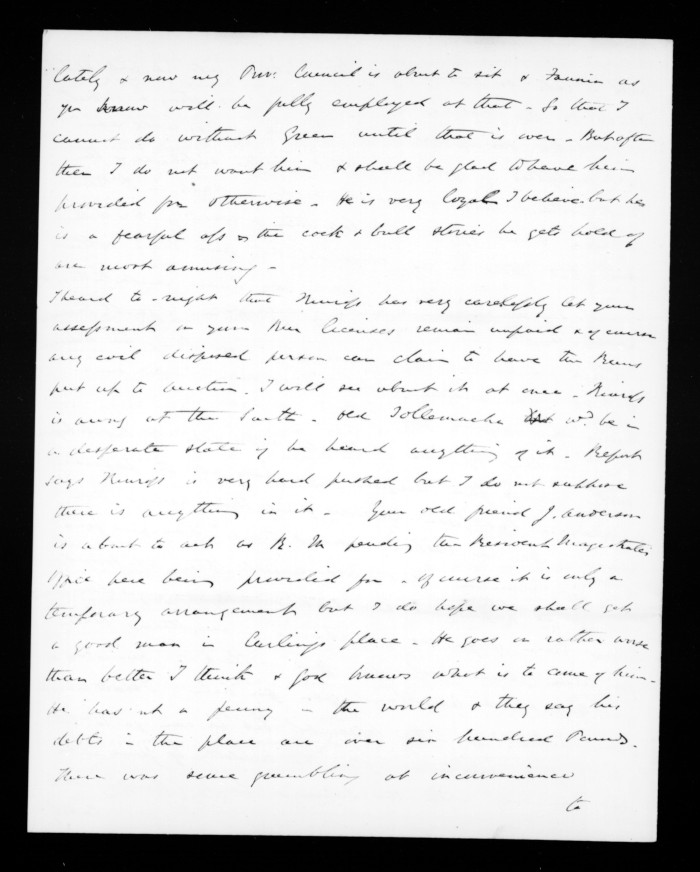 lately & now my Prov. Council is about to sit & Fannin as
you know will be fully employed at that - So that I
cannot do without Green until that is over - But after
then I do not want him & shall be glad to have him
provided for otherwise - He is very loyal I believe but he
is a fearful ass & the cock & bull stories he gets hold of
are most amusing -
I heard to-night that has very carelessly let your
assessment on your Run licenses remain unpaid & of course
any evil disposed person can claim to have the Runs
put up to auction. I will see about it at once -
is away at the South - Old Tollemache wd. be in
a desperate state if he heard anything of it - Report
says is very hard pushed but I do not suppose
there is anything in it - Your old friend J. Anderson
is about to act as R. M pending the Resident Magistrates
Office here being provided for - of course it is only a
temporary arrangement but I do hope we shall get
a good man in Curlings place - He goes on rather worse
than better I think & god knows what is to come of him -
He has not a penny in the world & they say his
debts in the place are over six hundred Pounds.
There was some grumbling at inconvenience
to